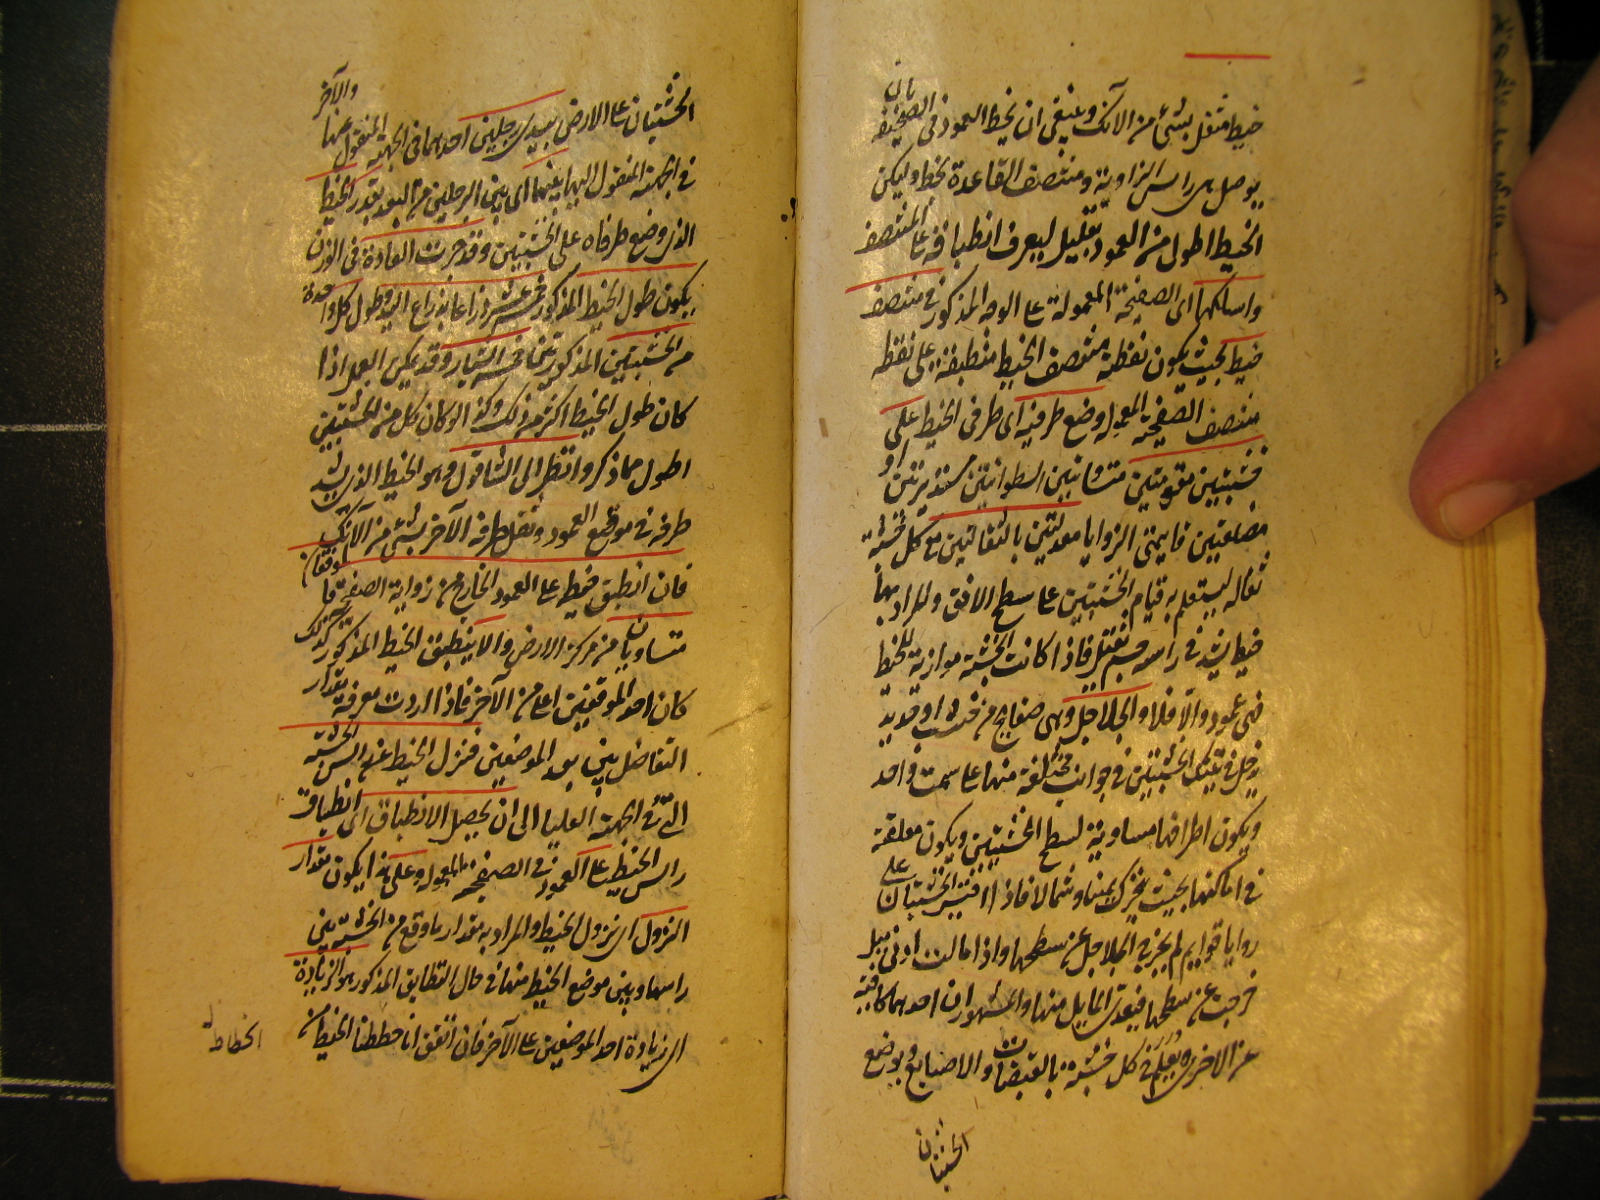 خيط مثقل بشئ من الآنك وينبغى ان يخط العمود فى الصفيحة بان
يوصل بين راس الزاوية ومنتصف القاعدة بخط وليكن
الخيط اطول من العمود بقليل ليعرف انطباقه على المنتصف
واسلكها اى الصفيحة المعمولة على الوجه المذكور فى منتصف
خيط بحيث يكون نقطة منتصف الخيط منطبقة على نقطة
منتصف الصفيحة المعمولة وضع طرفيه اى طرفى الخيط على
خشبتين مقومتين متساويتين اسطوانيتين مستديرتين او
مضلعتين قايمتى الزوايا معدلتين بالثقالتين مع كل خشبة
ثقاله ليستعلم به قيام الخشبتين على سطح الافق والمراد بها
خيط يشد فى راسه جسم ثقيل فاذا كانت الخشبة موازية للخيط
فهى عمود والا فلا او الجلاجل وهى صفايح من خشب او حديد
يدخل فى تينك الخشبتين فى جوانب مختلفة منها على سمت واحد
ويكون اطرافها مساوية لسطح الخشبتين ويكون معلقة
فى اماكنها بحيث يتحرك يمينا وشمالا فاذا اقيم الخشبتان على
زوايا قوايم لم يخرج الجلاجل عن سطحها واذا مالت ادنى ميل
خرجت عن سطحها فيعدل المايل منها والمشهور ان احدهما كافية
عن الاخرى ويعلم فى كل خشبة بالقبضات والاصابع ويوضع
الخشبتان
الخشبتان على الارض بيدى رجلين احدهما فى الجهة المنقول عنها والآخر
فى الجهة المنقول اليها بينهما اى بين الرجلين من البعد بقدر الخيط
الذى وضع طرفاه على الخشبتين وقد جرت العادة فى الوزن
بكون طول الخيط المذكور خمسة عشر ذراعا بذراع اليد وطول كل واحدة
من الخشبتين المذكورتين خمسة اشبار وقد يمكن العمل اذا
كان طول الخيط اكثر من ذلك وكذا لو كان كل من الخشبتين
اطول مما ذكر وانظر الى الشاقول وهو الخيط الذى شد
طرفه فى موقع العمود وثقل طرفه الآخر بشئ من الآنك
فان انطبق خيطه على العمود الخارج من زواية الصفيحة فالموقفان
متساويان من مركز الارض والا ينطبق الخيط المذكور كذلك
كان احد الموقفين اعلى من الآخر فاذا اردت معرفة مقدار
التفاضل بين بعد الموضعين فنزل الخيط عن راس الخشبة
التى فى الجهة العليا الى ان يحصل الانطباق اى انطباق
راس الخيط على العمود فى الصفيحة المعمولة وعلى هذا يكون مقدار
النزول اى نزول الخيط والمراد به مقدار ما وقع من الخشبة بين
راسها وبين موضع الخيط منها فى حال التطابق المذكور هو الزيادة
اى زيادة احد الموضعين على الآخر فان اتفق انا حططنا الخيط من
الخطاط